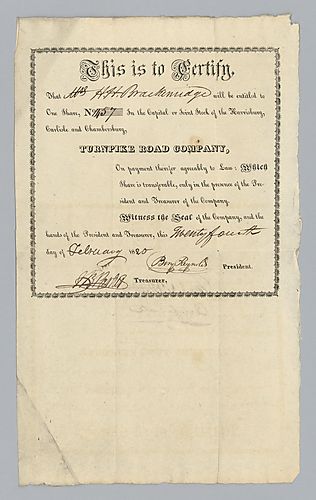 This is to Certify,
That Mrs H H Brackenridge will be entitled to
One Share, No. 457 In the Capital or Joint Stock of the Harrisburg,
Carlisle and Chambersburg,
TURNPIKE ROAD COMPANY,
On payment therefor agreeably to Law: Which
Share is transferable, only in the presence of the Pre-
sident and Treasurer of the Company.
Witness the Seal of the Company, and the
hands of the President and Treasurer, this Twenty fourth
day of February 1820
Benj Reynolds President.
Treasurer.